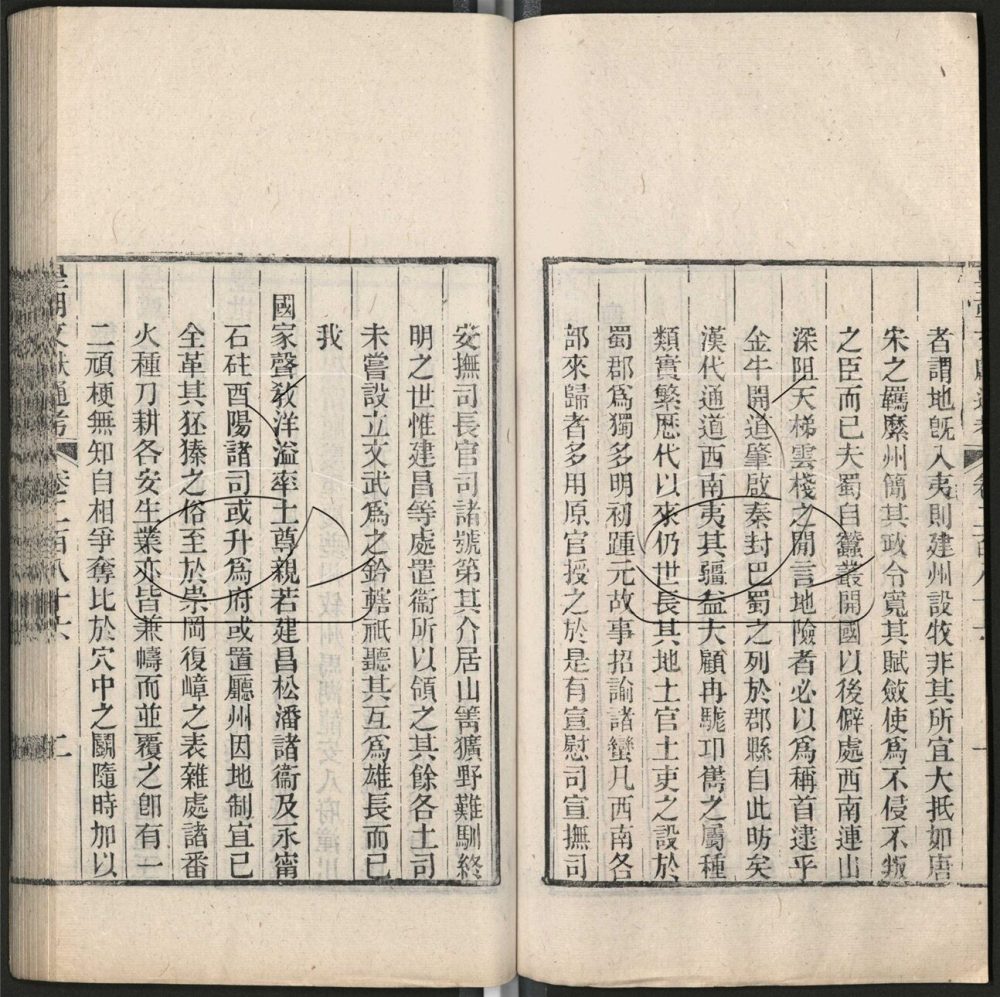 者謂地旣入夷則建州設牧非其所宜大抵如唐
宋之羈縻州簡其政令寬其賦斂使爲不侵不叛
之臣而已夫蜀自蠶叢開國以後僻處西南連山
深阻天梯雲棧之閒言地險者必以爲稱首逮乎
金牛開道肇啟秦封巴蜀之列於郡縣自此昉矣
漢代通道西南夷其疆益大顧冉駹邛雟之屬種
類實繁歷代以來仍世長其地土官土吏之設於
蜀郡爲獨多明初踵元故事招諭諸蠻凡西南各
部來歸者多用原官授之於是有宣慰司宣撫司
安撫司長官司諸號第其介居山箐獷野難馴終
明之世惟建昌等處置衞所以領之其餘各土司
未嘗設立文武爲之鈐轄祇聽其互爲雄長而已
我
國家聲敎洋溢率土尊親若建昌松潘諸衞及永甯
石砫酉陽諸司或升爲府或置廳州因地制宜已
全革其狉獉之俗至於崇岡復嶂之表雜處諸番
火種刀耕各安生業亦皆兼幬而並覆之卽有一
二頑梗無知自相爭奪比於穴中之鬭隨時加以
皇朝文獻通考 卷二百八十六 二